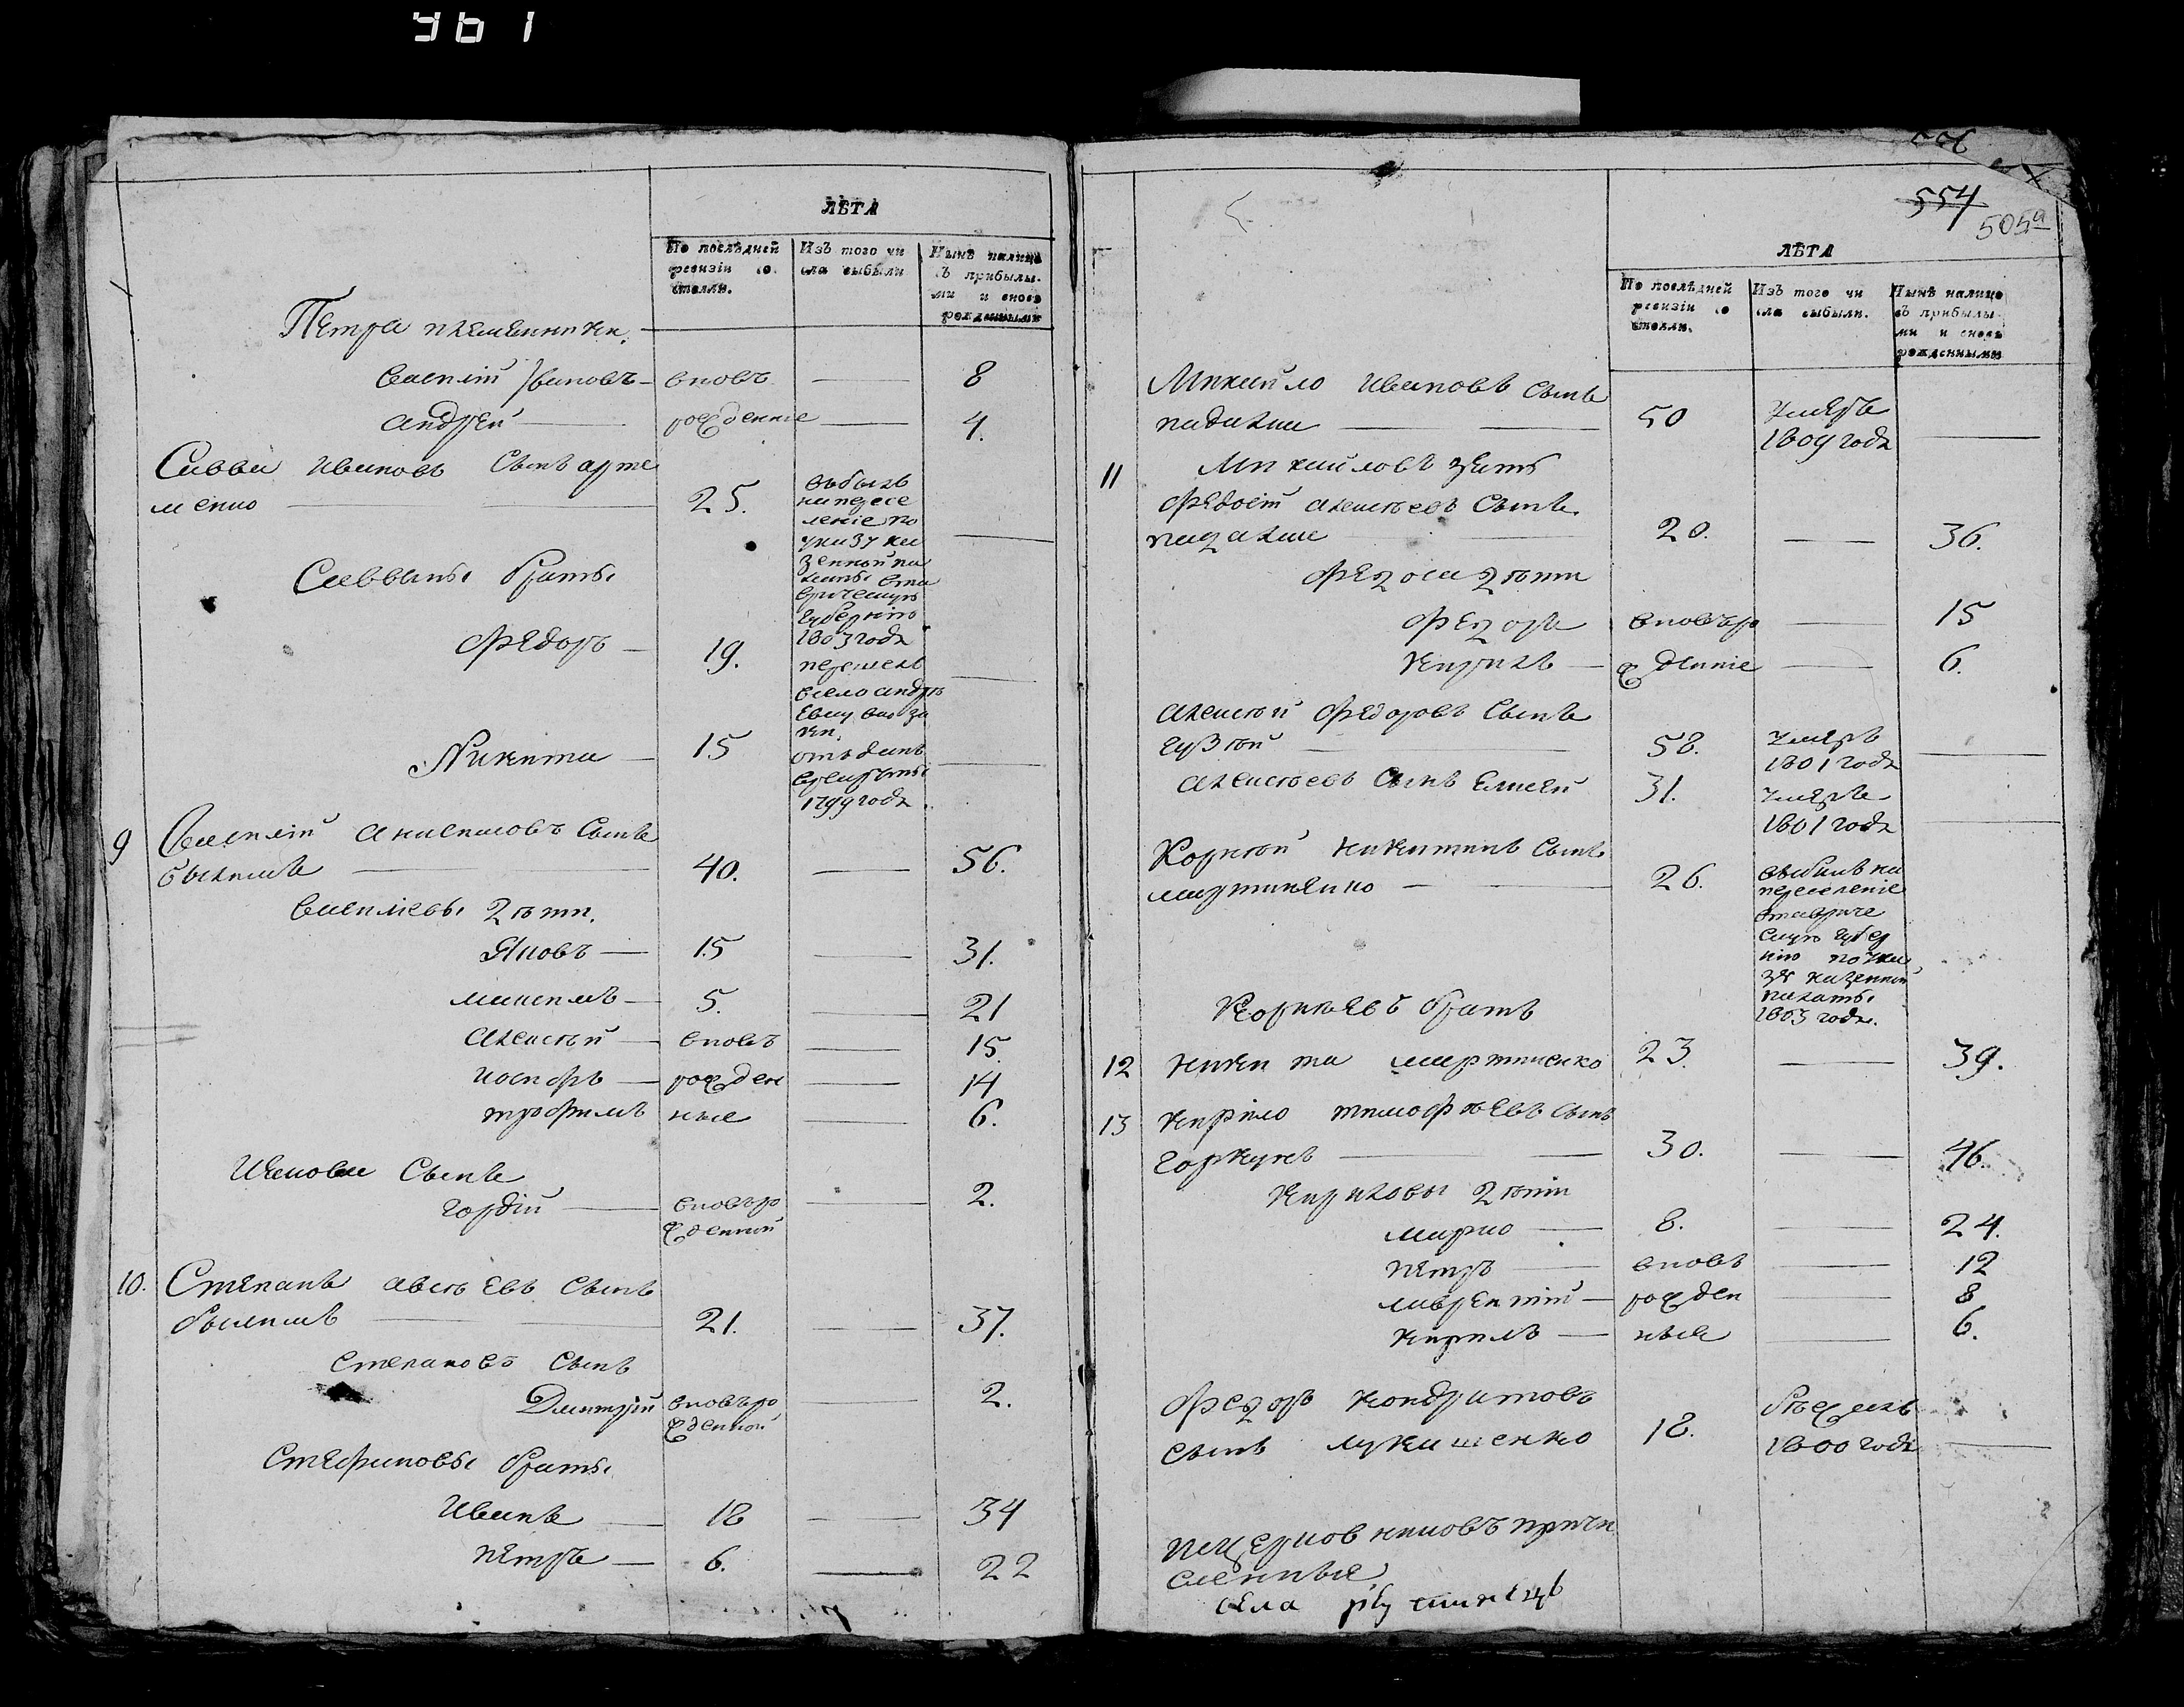 961
ЛѢТА
По послѣдней ревизіи со стояли.
Изъ того чи сла выбыли
Нынѣ налицо съ прибылы-ми и вновь рожденными
Петра племянники
василій Ивановъ — вновъ — 8
андрей — рожденніе — 4.
Савва ивановъ Сынъ арте
менко — 25.
выбылъ
на пересе
леніе по
указу ка
зенной па
латы вта
врическую
губернію
1803 года
Саввины браты
Федоръ — 19.
перешелъ
всело андре
Никита — 15
отъ данъ
врекруты
1799 года.
9 Василій анисимовъ Сынъ
40. — 56.
василіевы дѣти.
Яковъ — 15 — 31.
максимъ — 5. — 21
алексѣй — вновъ — 15.
иосифъ — рожден — 14
трофимъ ные — 6.
Якова Сынъ
гордій — вновъро — 2.
жденной
10. Степанъ авсѣевъ Сынъ
21. — 37.
степановъ Сынъ
Дмитрій вновъро — 2.
жденной
Стефановы браты
Иванъ — 18 — 34
петръ — 6. — 22
556
554
505а
ЛѢТА
По послѣдней ревизіи со стояли.
Изъ того чи сла выбыли.
Нынѣ налицо съ прибылы-ми и вновь рожденными
Михайло ивановъ Сынъ
падалка — 50
умеръ
1809 года —
11 Михайловъ зять
Федосій алексѣевъ Сынъ
падалка — 20. — 36.
федоса дѣти
федоръ вновъро — 15
кирилъ — жденніе — 6.
алексѣй Федоровъ Сынъ
гузѣй — 58.
умеръ
1801 года —
алексѣевъ Сынъ елисей 31.
умеръ
1801 года —
Корнѣй никитинъ Сынъ
мартиненко — 26.
выбылъ на
переселеніе
втавриче
скую губер
нію по ука
зу казенной
палаты
1803 года.
Корнѣевъ братъ
12 никита мартиненко 23. — 39.
13 кирило тимофѣевъ Сынъ
горкунъ — 30. — 46.
Кириловы дѣти
марко — 8. — 24.
петръ — вновъ — 12
лаврентій — рожден — 8
кирилъ — ные — 6.
федоръ кондратовъ
сынъ лукашенко 18.
бѣжалъ
1800 года —
причи
сленные
села